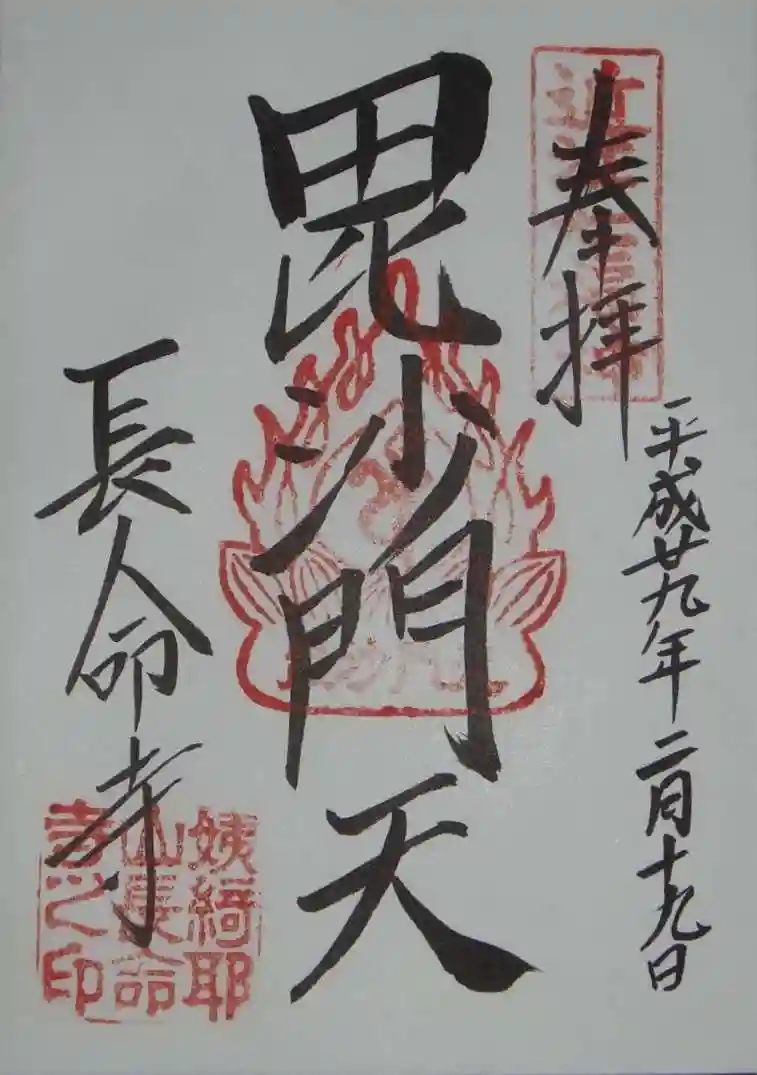 奉拝
平成廿九年二月十九日
毘沙門天
長命寺
姨綺耶
山長命
寺之印